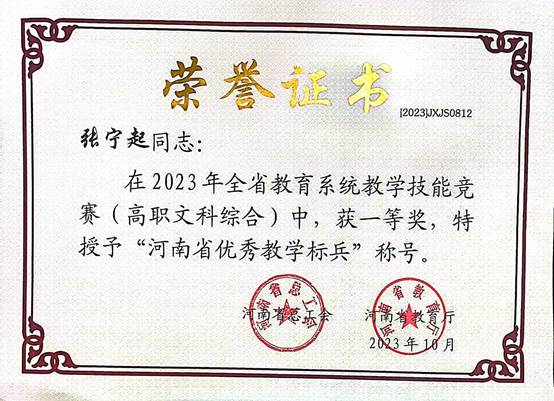 荣誉证书
[2023]JXJS0812
张宁起同志：
在2023年全省教育系统教学技能竞
赛（高职文科综合）中，获一等奖，特
授予“河南省优秀教学标兵”称号。
河南省总工会 河南省教育厅
河南省总工会 河南省教育厅
2023年10月